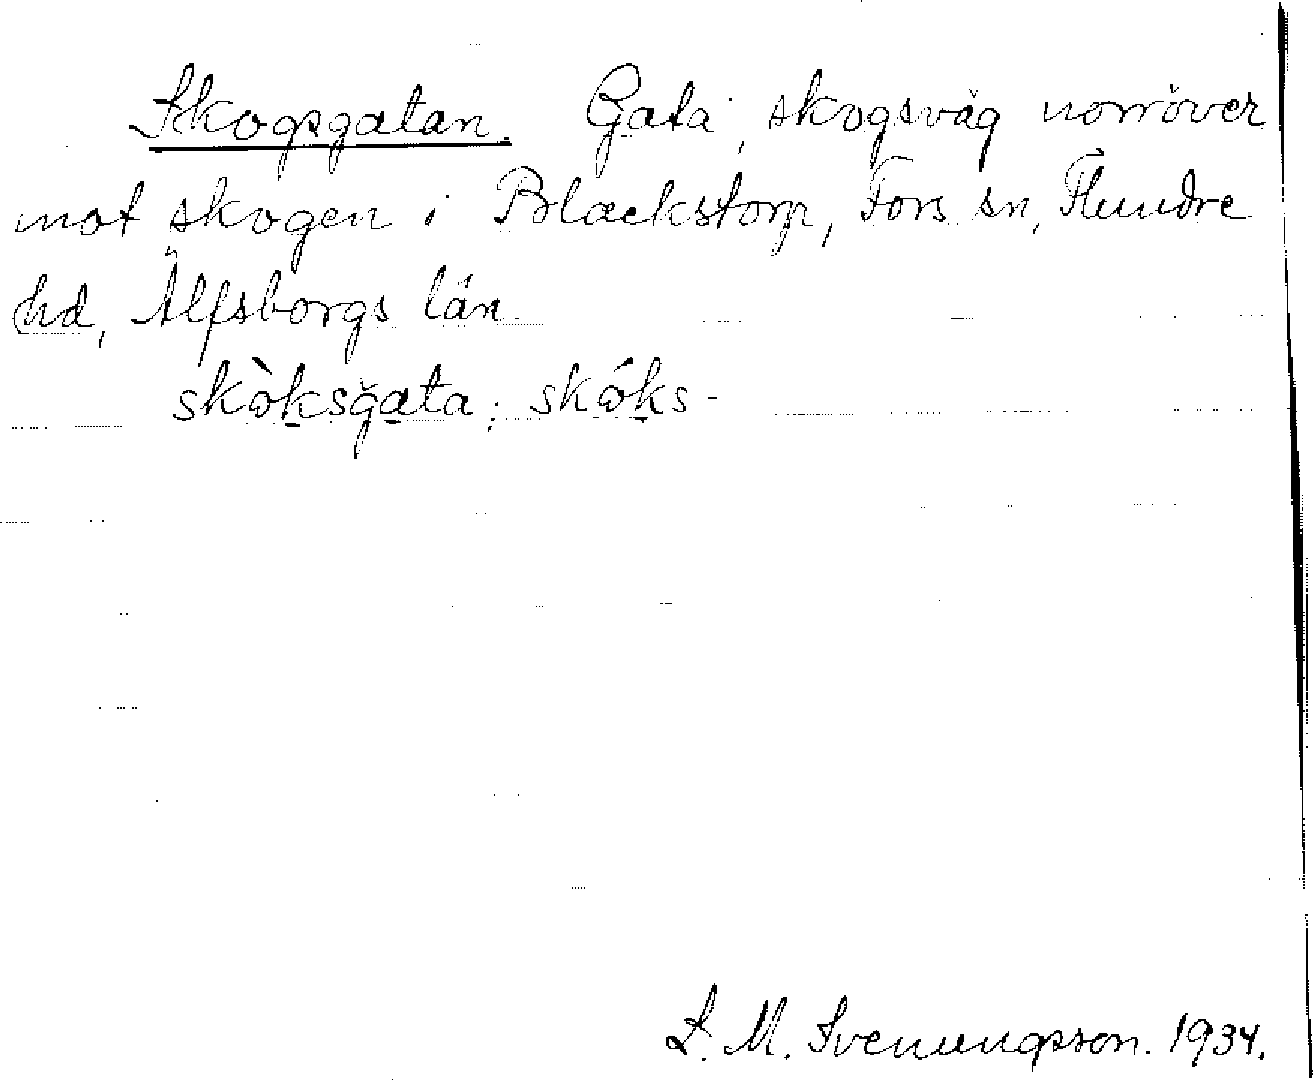 Skogsgatan. Gata, skogsväg norröver
mot skogen i Blackstorp, Fors sn, Flundre
hd, Älfsborgs län.
skòksgata; skóks-
S. M. Svenungsson. 1934.